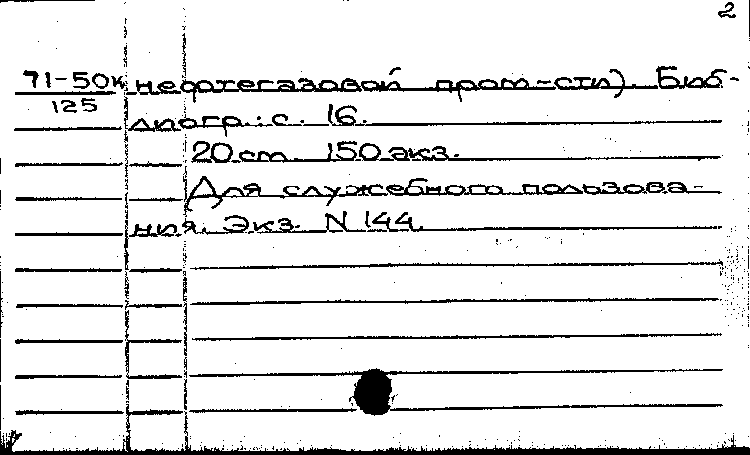 2
71-50к нефтегазовой пром-сти). Биб-
125
лиогр.: с. 16.
20 cm. 150 экз.
Для служебного пользова-
ния. Экз. N 144.